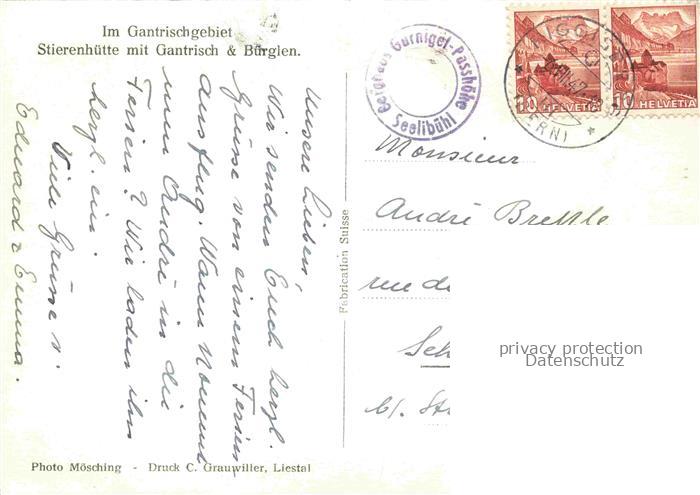 Im Gantrischgebiet
Stierenhütte mit Gantrisch & Bürglen.
Unsere Lieben!
Wir senden Euch herzl.
Grüsse von einem Ferien-
ausflug. Wann kommt
nun André in die
Ferien? Wir laden ihn
herzl. ein.
Viele Grüsse v.
Eduard & Emma.
Photo Mösching - Druck C. Grauwiller, Liestal
Fabrication Suisse
Berghaus Gurnigel-Passhöhe
Seelibühl
RIGGISBERG
(BERN)
10 HELVETIA
10 HELVETIA
Monsieur
André
rue de
Sch
b/. Str
privacy protection
Datenschutz